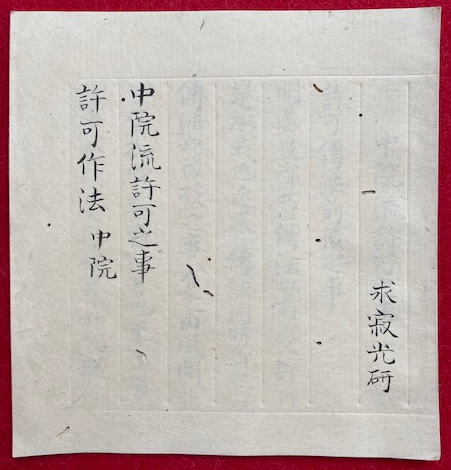 求寂光研
中院流許可之事
許可作法 中院